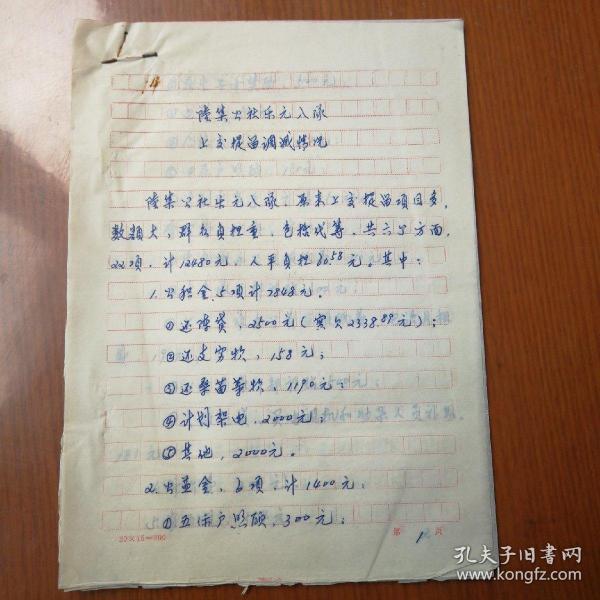 陆集公社乐元八队
上交提留调减情况
陆集公社乐元八队，原来上交提留项目多，
数额大，群众负担重，包括代筹，共六个方面，
22项，计12480元，人平负担60.58元。其中：
1.公积金，5项计7848元。
①还陈贷，2500元（实欠2338.89元）；
②还支穷款，158元；
③还桑苗等款，1190元；
④计划架电，2000元；
⑤其他，2000元。
2.公益金，6项，计1400元；
①五保户照顾，300元；
20×15=300
第 1 页
孔夫子旧书网
www.kongfz.com